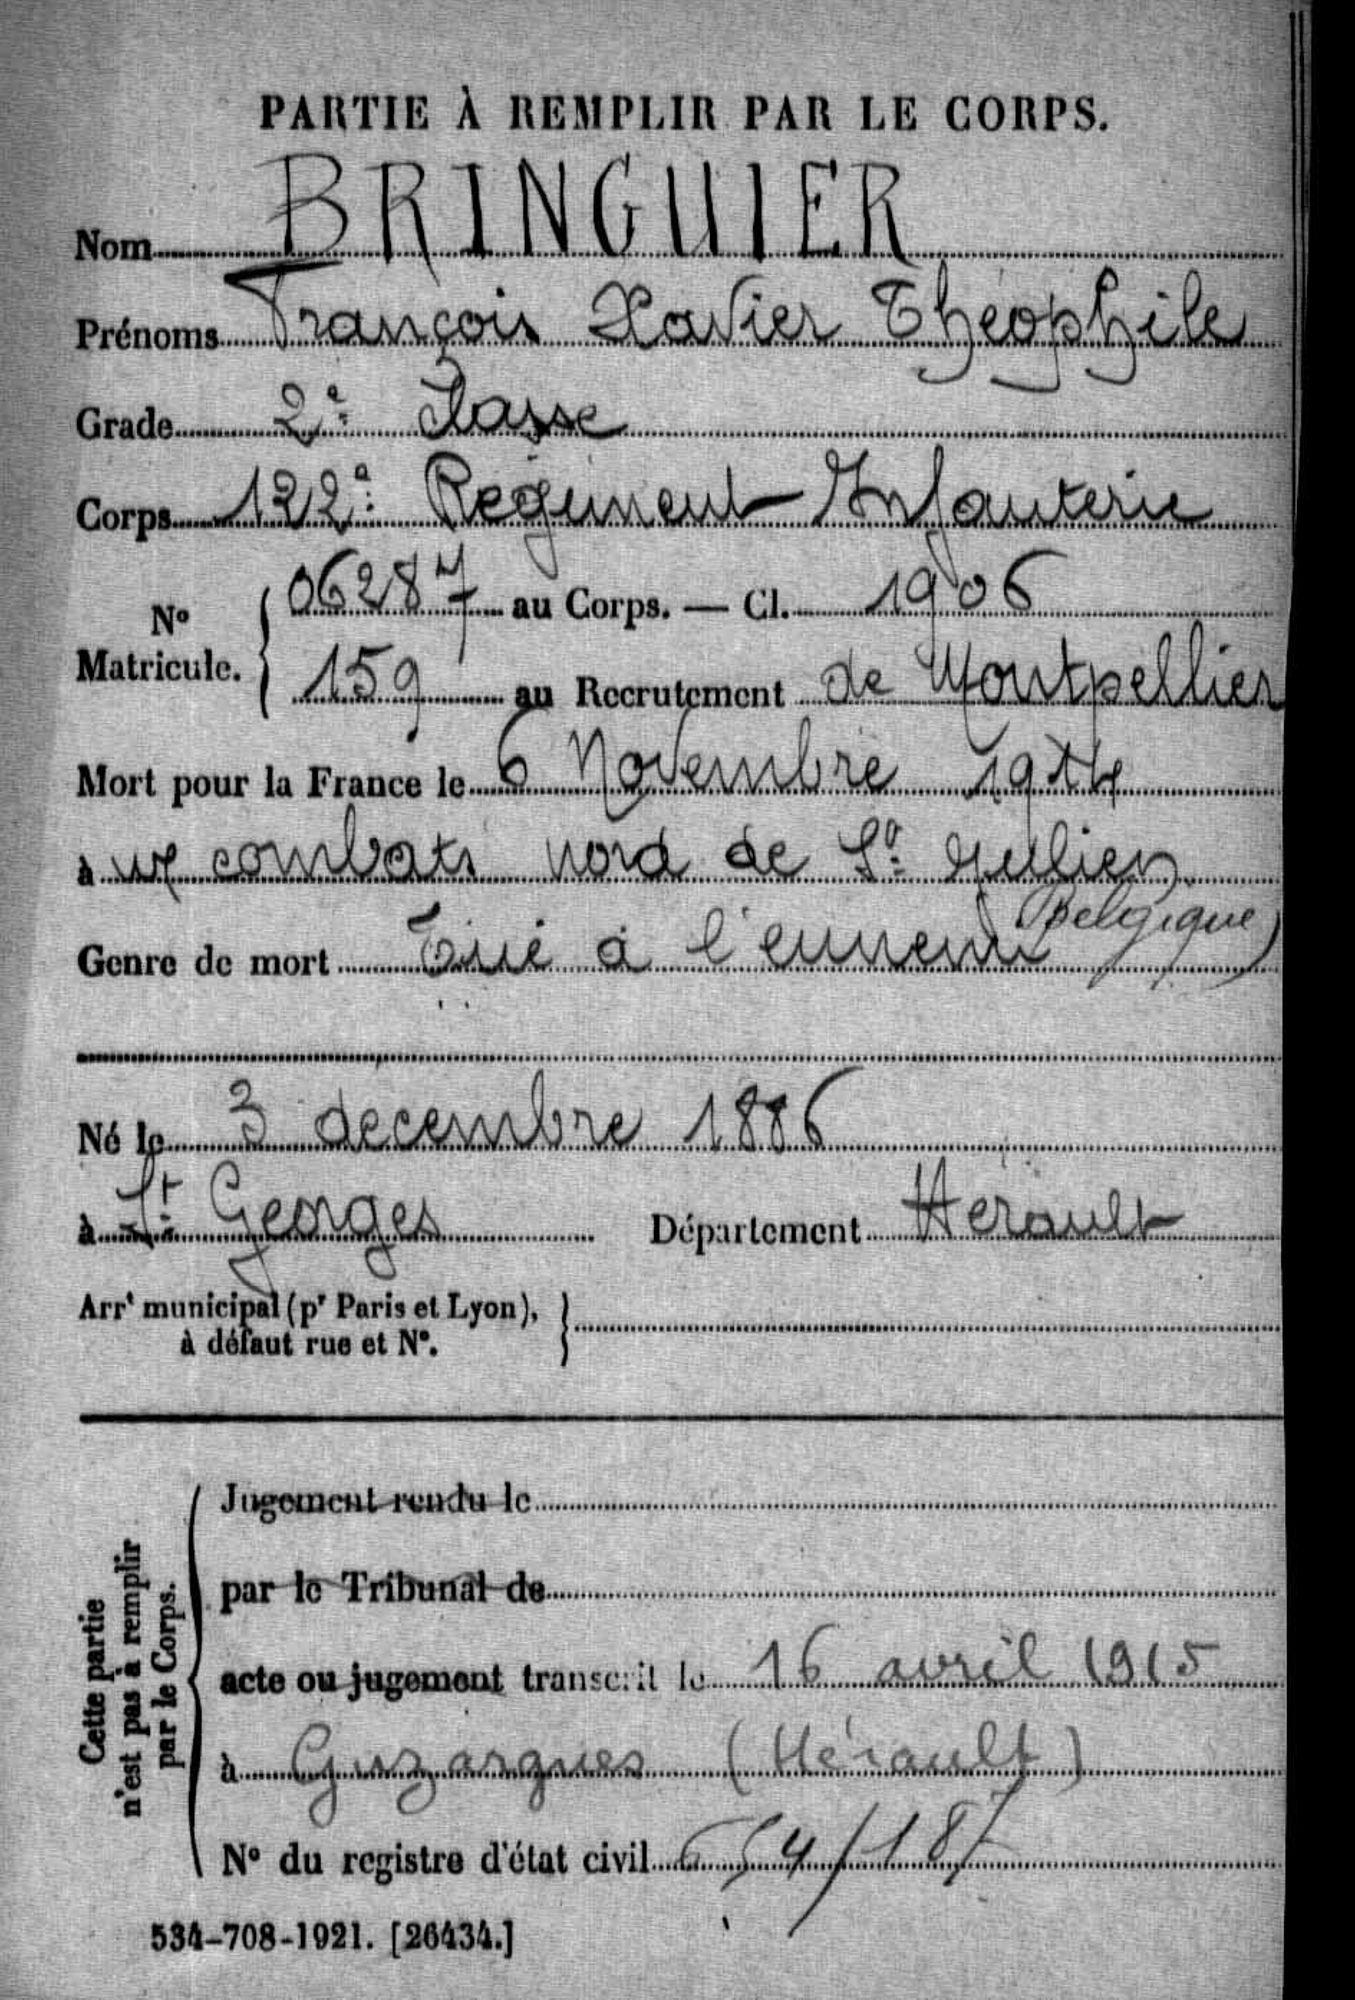 PARTIE À REMPLIR PAR LE CORPS.
Nom BRINGUIER
Prénoms François Xavier Théophile
Grade 2e Classe
Corps 122e Regiment Infanterie
No Matricule. 06287 au Corps. — Cl. 1906
159 au Recrutement de Montpellier
Mort pour la France le 6 Novembre 1914
à ux combats nord de St Jullien
(Belgique)
Genre de mort Tué à l'ennemi
Né le 3 decembre 1886
à St Georges Département Herault
Arrt municipal (pr Paris et Lyon),
à défaut rue et No.
Cette partie
n'est pas à remplir
par le Corps.
Jugement rendu le
par le Tribunal de
acte ou jugement transcrit le 16 avril 1915
à Guzargues (Hérault)
No du registre d'état civil 654/187
534-708-1921. [26434.]